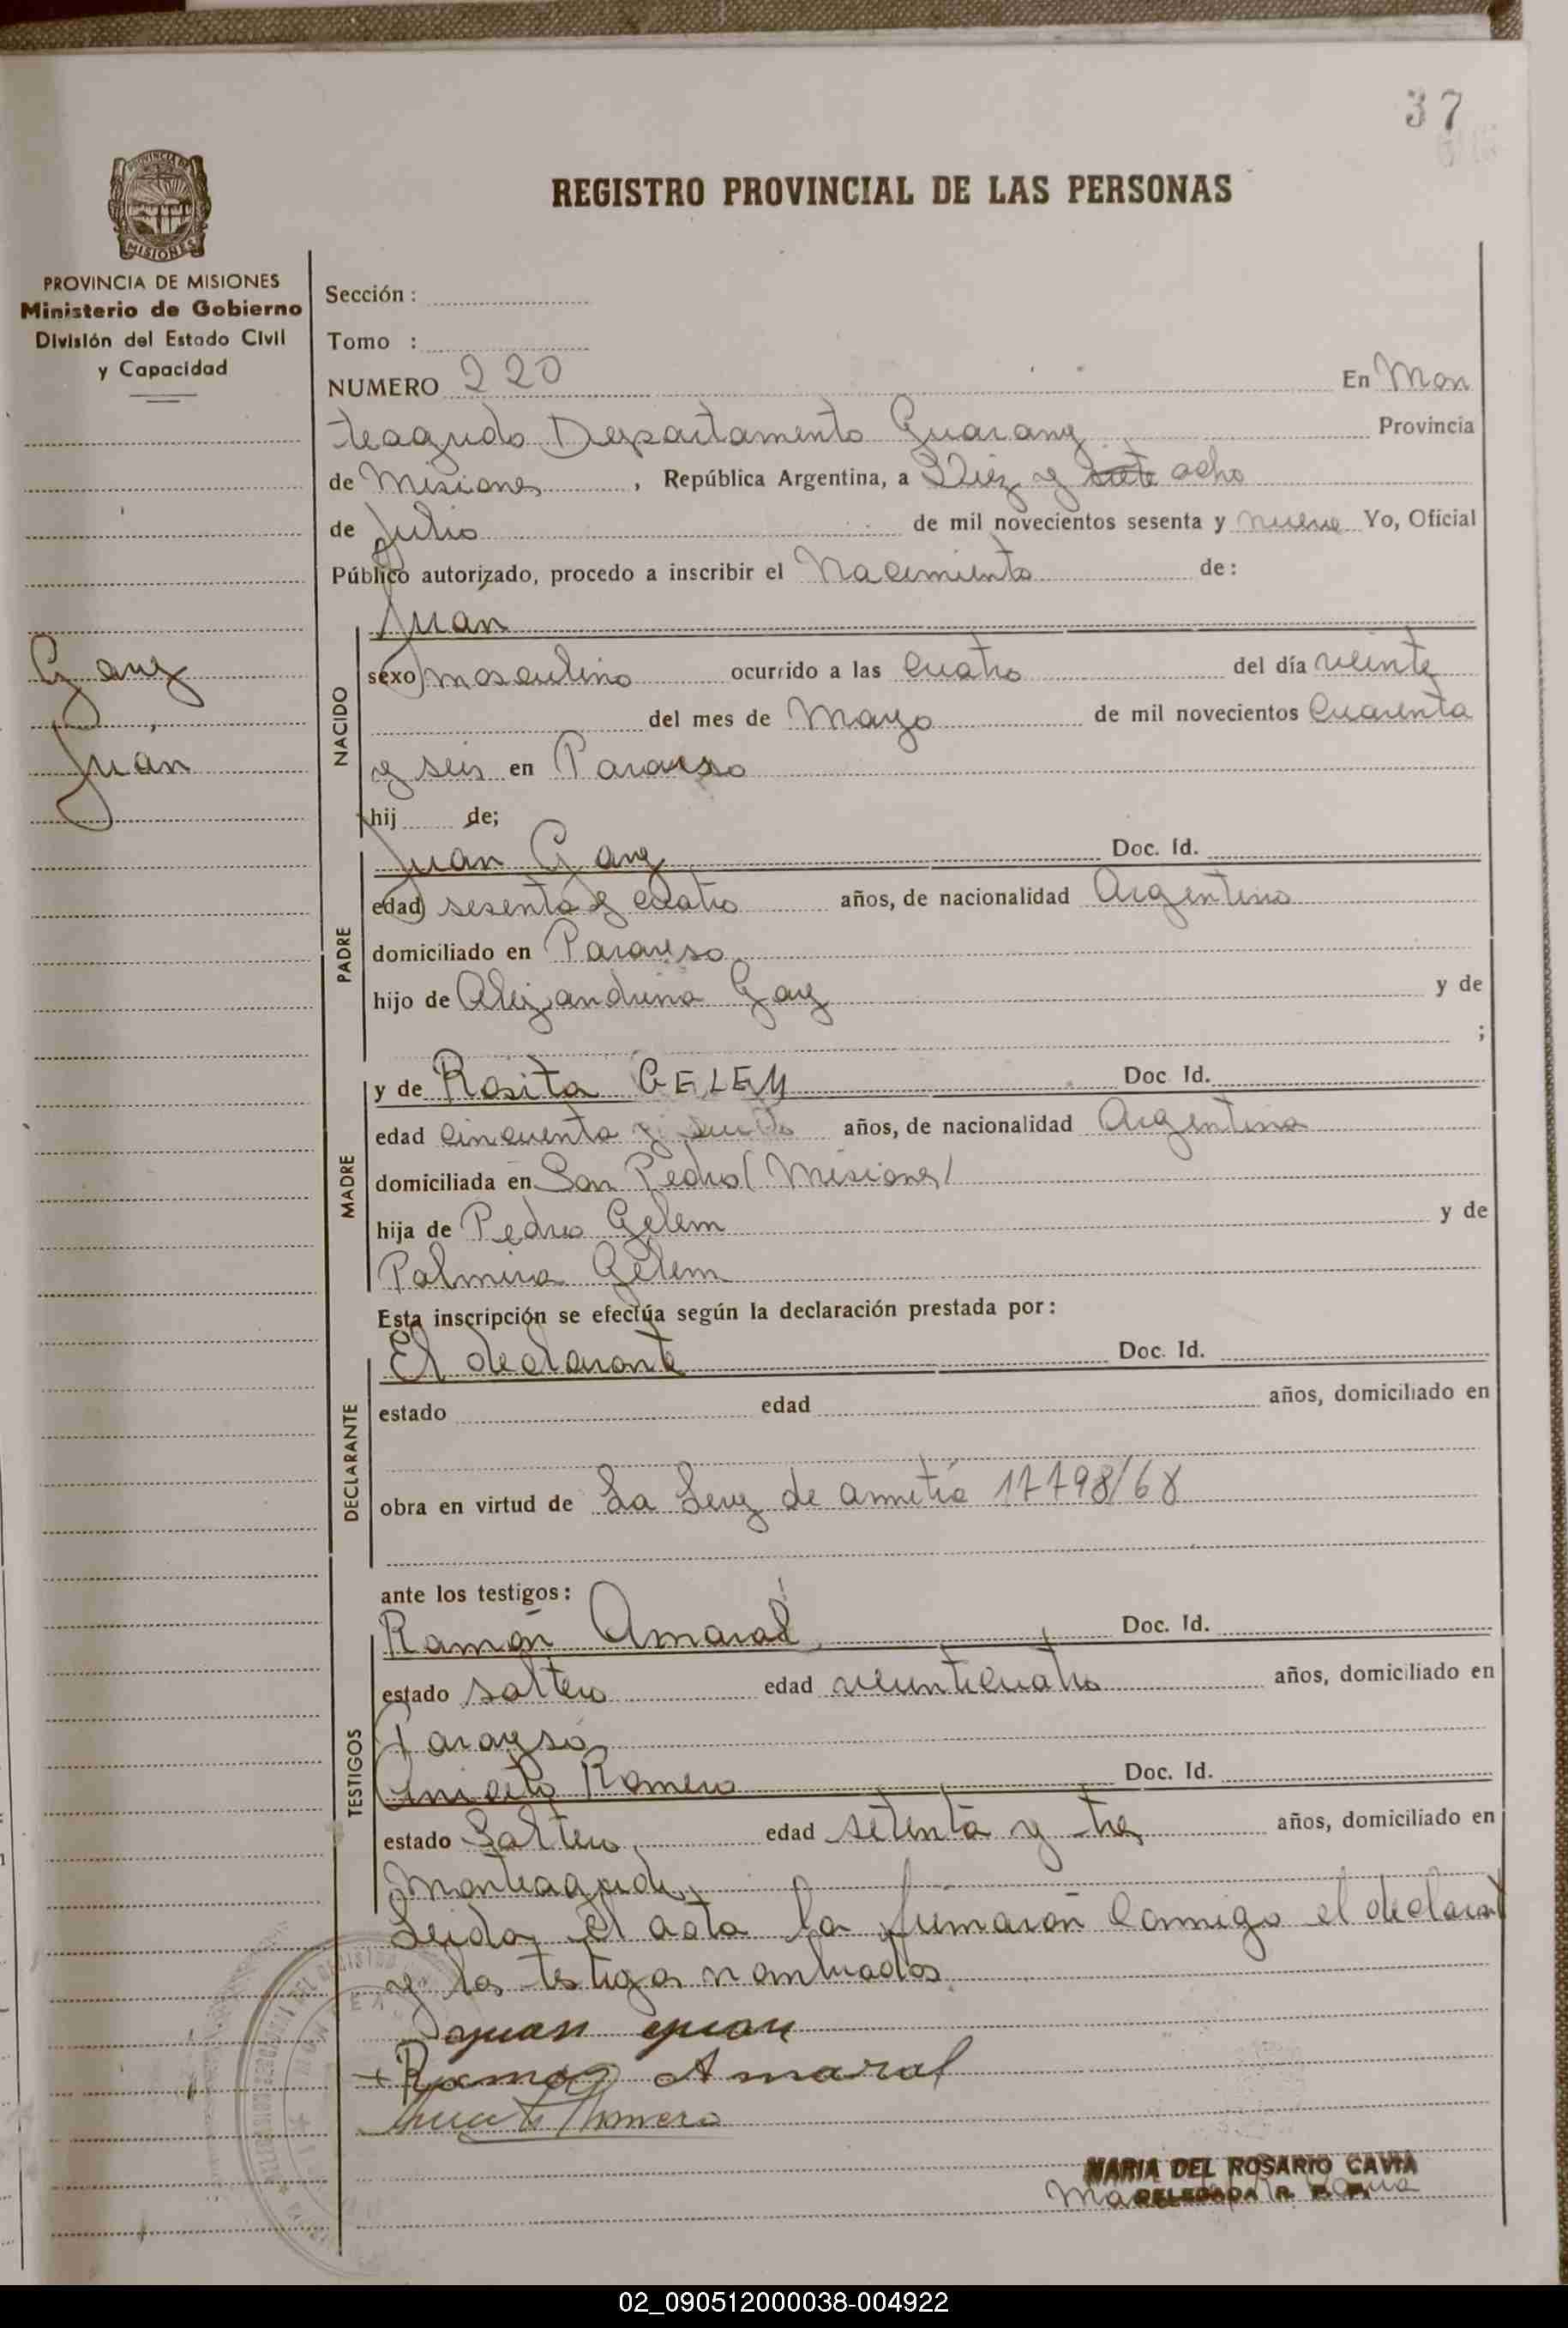 37
REGISTRO PROVINCIAL DE LAS PERSONAS
PROVINCIA DE MISIONES
PROVINCIA DE MISIONES
Ministerio de Gobierno
División del Estado Civil
y Capacidad
Gary
Juan
Sección :
Tomo :
NUMERO 220 En Mon
teagudo Departamento Guarany Provincia
de Misiones , República Argentina, a Diez y siete ocho
de Julio de mil novecientos sesenta y nueve Yo, Oficial
Público autorizado, procedo a inscribir el Nacimiento de:
Juan
NACIDO
sexo masculino ocurrido a las cuatro del día veinte
del mes de Mayo de mil novecientos Cuarenta
y seis en Parayso
hij de;
Juan Gary Doc. Id.
PADRE
edad sesenta y cuatro años, de nacionalidad Argentino
domiciliado en Parayso
hijo de Alejandrina Gary y de
;
y de Rosita GELEM Doc Id.
MADRE
edad cincuenta y años, de nacionalidad Argentina
domiciliada en San Pedro (Misiones)
hija de Pedro Gelem y de
Palmira Gelem
Esta inscripción se efectúa según la declaración prestada por:
El declarante Doc. Id.
DECLARANTE
estado edad años, domiciliado en
obra en virtud de La Ley de amnetía 17798/68
ante los testigos:
Ramón Amaral Doc. Id.
TESTIGOS
estado soltero edad veinticuatro años, domiciliado en
Parayso
Aniceto Romero Doc. Id.
estado Soltero edad setenta y tres años, domiciliado en
Monteagudo
Leida el acta la firmaron conmigo el declarant
y los testigos nombrados
Ramon Amaral
Romero
MARIA DEL ROSARIO CAVIA
DELEGADA R. P. P.
02_090512000038-004922